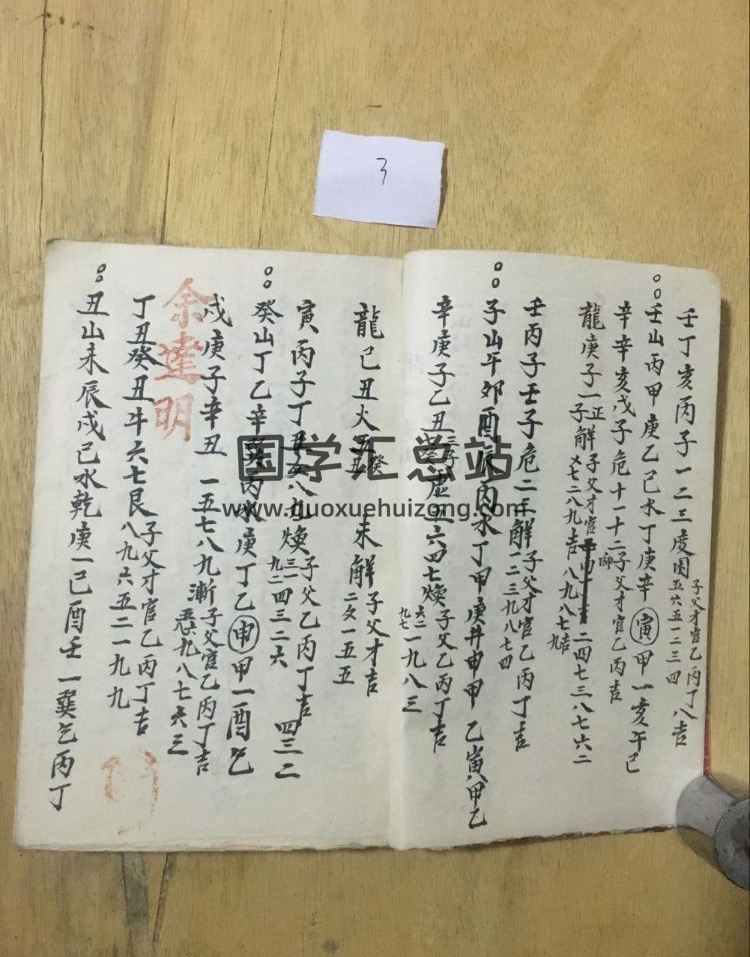 3
壬丁亥丙子一二三度困子父才官乙丙丁八吉
五六五一二三四
壬山丙甲庚乙己水丁庚辛寅甲一亥午巳
辛辛亥戊子危十一十二子父才官乙丙吉
龍庚子一正子解子父才官
又七二八九吉八九八七九吉
二四七三八七六二
壬丙子壬子危二三解子父才官乙丙丁吉
一二三九八七四
子山午卯酉辰丙水丁甲庚井申甲乙寅八甲乙
辛庚子乙丑虛五六四七煥子父乙丙丁吉
六二一九八三
九七
龍己丑火五五癸未解子父才吉
二久一五五
寅丙子丁丑八九煥子父乙丙丁吉
三一四三二六
九二
四三二
癸山丁乙辛丙水庚丁乙申甲一酉乞
戌庚子辛丑一五七八九漸子父官乙丙丁吉
九八七六三
丁丑癸丑斗六七艮子父才官乙丙丁吉
八九六五二一九九
丑山未辰戌己水乾庚一己酉壬一巽乞丙丁
余達明
国学汇总站
www.guoxuehuizong.com